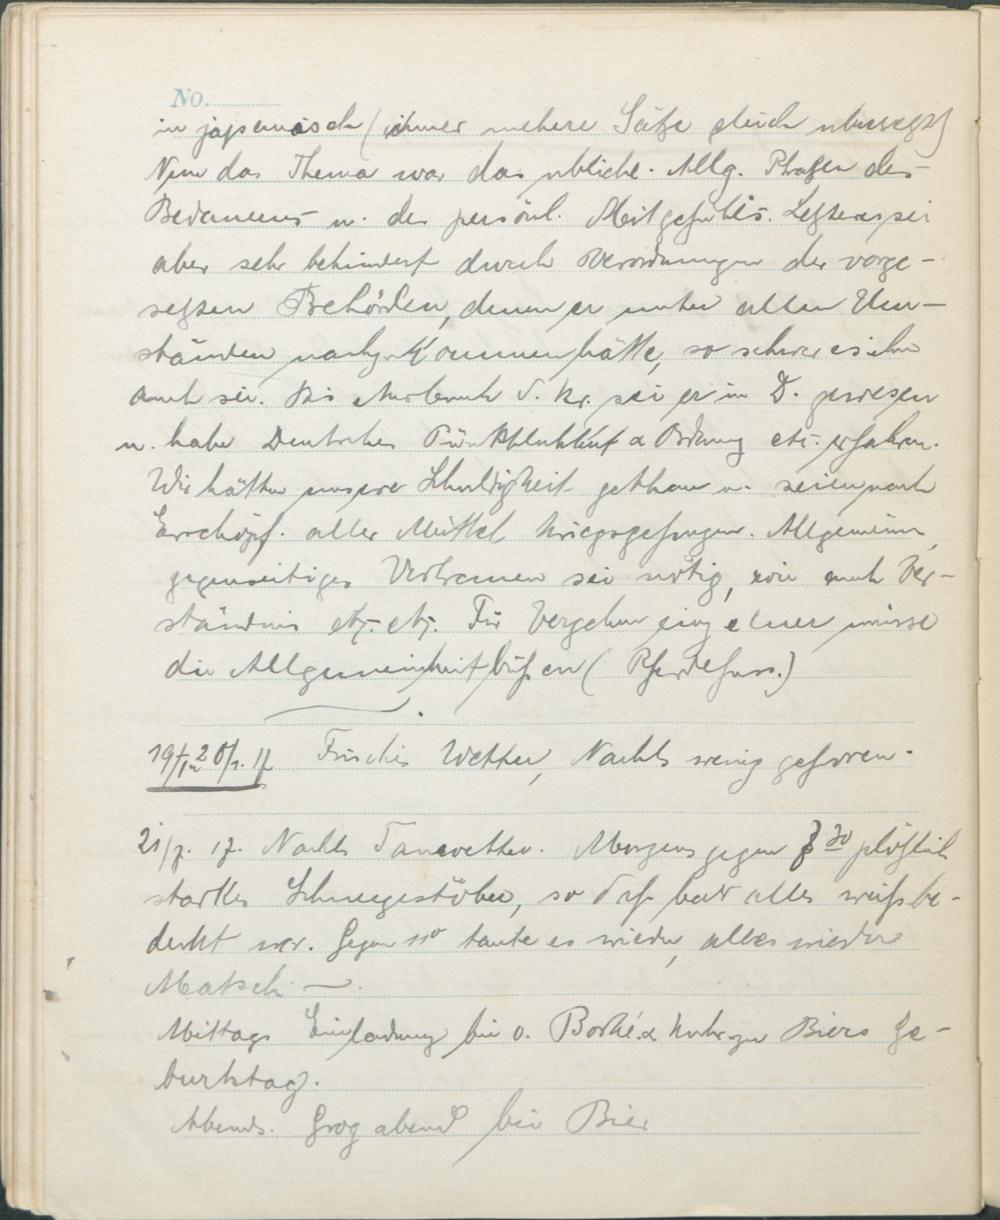 No.
in japanisch (immer mehere Sätze gleich übersetzt)
Nun das Thema war das übliche. Allg. Phrasen des
Bedauerns u. des persönl. Mitgefühls. Letzteres sei
aber sehr behindert durch Verordnungen der vorge-
setzten Behörden, denen er unter allen Um-
ständen nachzukommen hätte, so schwer es ihm
auch sei. Bis Ausbruch d. Kr. sei er in D. gewesen
u. habe Deutsches Pünktlichkeit & Ordnung etc. erfahren.
Wir hätten unsere Schuldigkeit gethan u. seien nach
Erschöpf. aller Mittel kriegsgefangen. Allgemeines,
gegenseitiges Vertrauen sei nötig, wie auch Ver-
ständnis etz. etz. Für Vergehen einzelner müsse
die Allgemeinheit büßen (Pferdefuss.)
Frisches Wetter, Nachts wenig gefroren.
21/1. 17. Nachts Tauwetter. Morgens gegen 7 30 plötzlich
starkes Schneegestöber, so daß bald alles weiß be-
deckt war. Gegen 11° taute es wieder, alles wieder
Matsch —.
Mittags Einladung bei v. Borke & zu Biers Ge-
burtstag.
Abends. Grogabend bei Bier